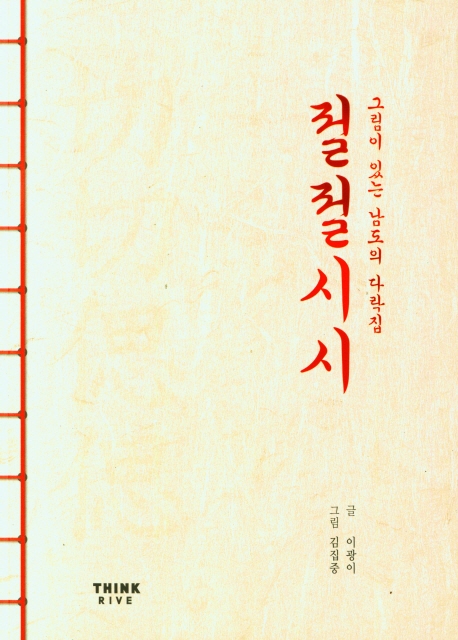 그림이 있는 남도의 다락집
절절시시
글 이광이
그림 김집중
THINK
RIVE